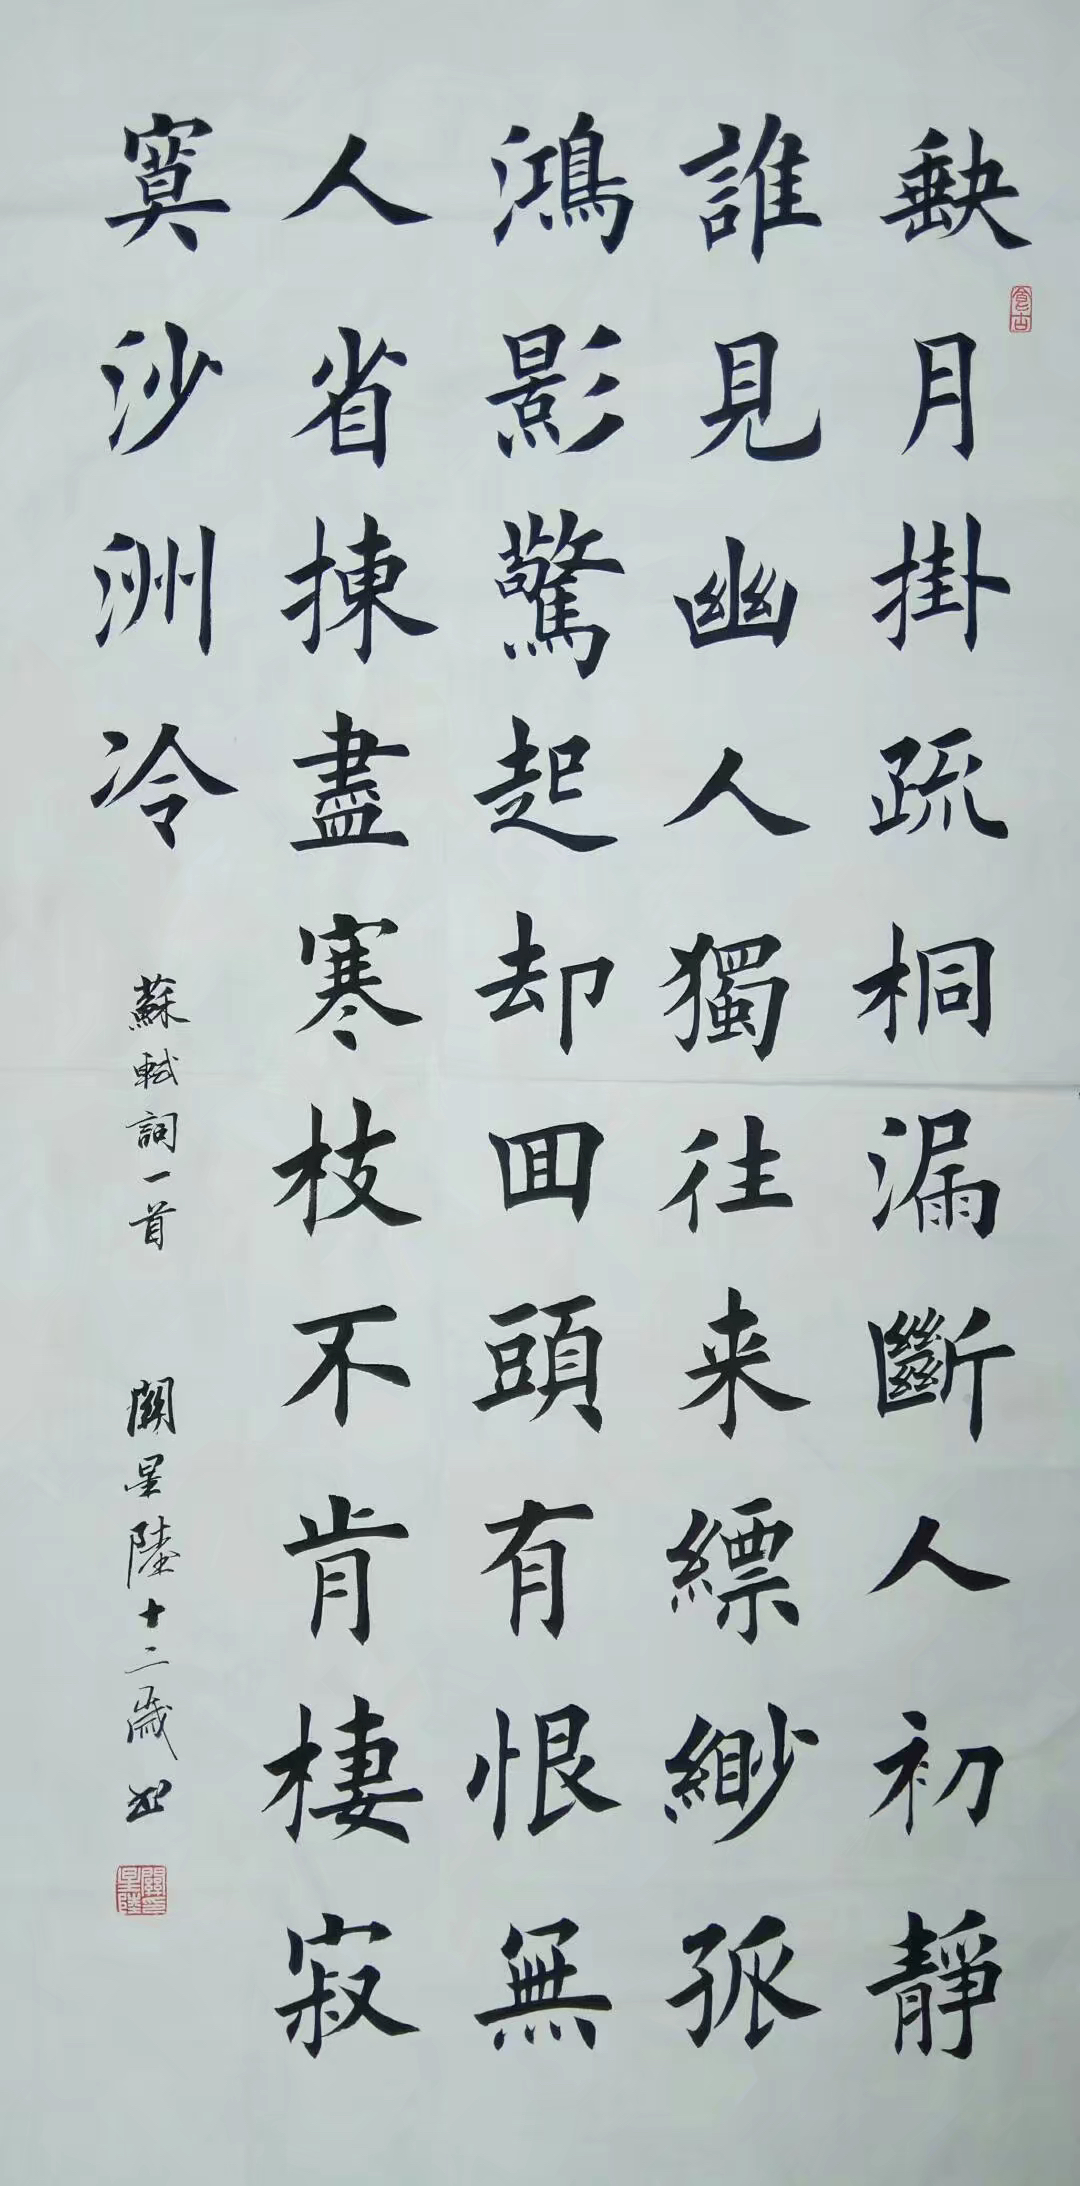 缺月掛疏桐漏斷人初靜
誰見幽人獨往来縹緲孤
鴻影驚起却回頭有恨無
人省揀盡寒枝不肯棲寂
寞沙洲冷
蘇軾詞一首
關星陸十二歲書
關星陸印